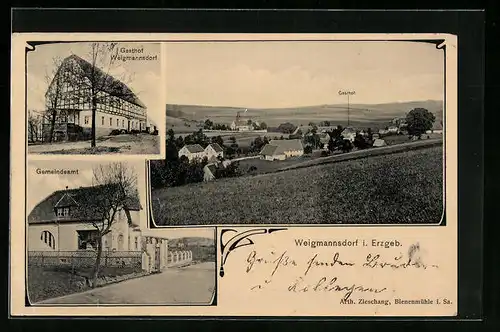 Gasthof
Weigmannsdorf
Gasthof.
Gemeindeamt
Weigmannsdorf i. Erzgeb.
Grüße senden
u
Arth. Zieschang, Bienenmühle i. Sa.